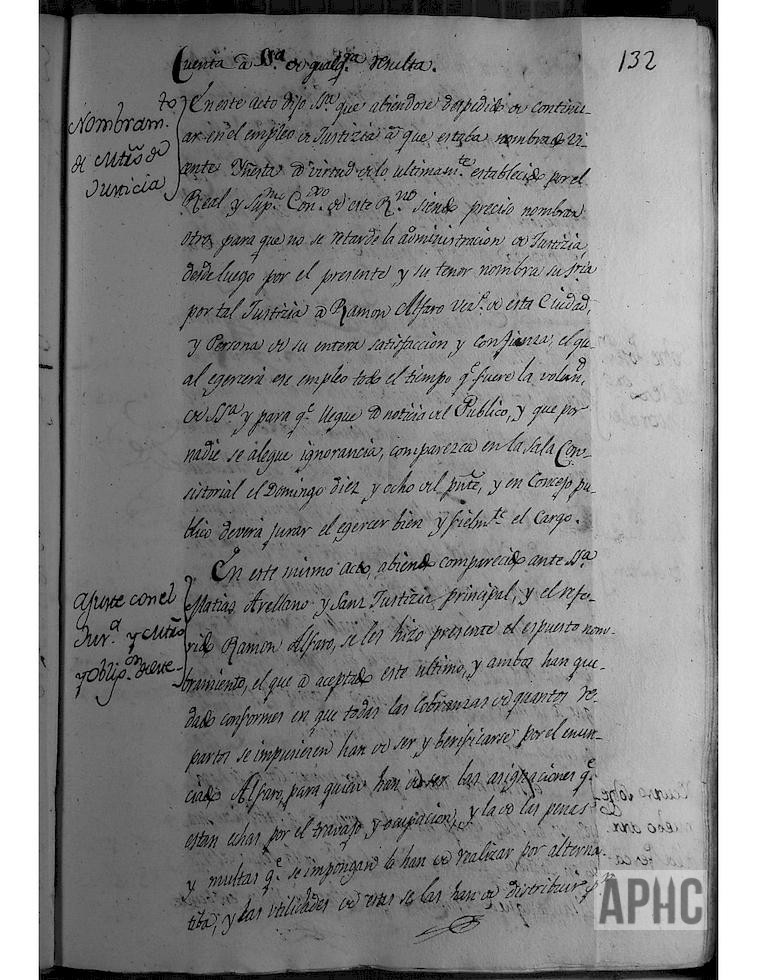 132
Cuenta â SSª. de qualqª. resulta.
Nombram.to
de Mtrõ de
Justicia
En este acto dijo SSª que abiendose despedido de continu-
ar en el empleo de Justizia â que estaba nombrado Vi-
cente en virtud de lo ultimam.te establecido por el
Real y Sup.mo Con.º de este R.no siendo preciso nombrar
otro para que no se retarde la administracion de Justizia,
desde luego por el presente y su tenor nombra su Sria
por tal Justizia â Ramon Alfaro Vez.º de esta Ciudad,
y Persona de su entera satisfaccion y confianza, el qu-
al egercerá ese empleo todo el tiempo q.e fuere la volun.d
de SSª y para q.e llegue â noticia del Publico, y que por
nadie se alegue ignorancia, comparezca en la sala Con-
sistorial el Domingo diez y ocho del pnte, y en Concejo pu-
blico deverá jurar el egercer bien y fielm.te el Cargo.
Ajuste con el
Jur.ª y Mtrõ
y oblig.on
En este mismo acto, abiendo comparecido ante SSª
Matias Arellano y Sanz Justizia principal, y el refe-
rido Ramon Alfaro, se les hizo presente el espuesto nom-
bramiento, el que â aceptado este ultimo, y ambos han que-
dado conformes en que todas las Cobranzas de quantos re-
partos se impusieren han de ser y berificarse por el enun-
ciado Alfaro, para quien han de ser las asignaciones q.e
estan echas por el travajo y ocupacion, y la de las penas
y multas q.e se impongan lo han de realizar por alterna-
tiba, y las vtilidades de estas se las han de distribuir p.r
APHC